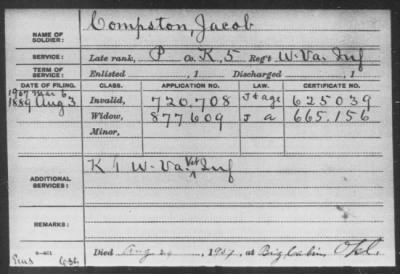 NAME OF SOLDIER: Compston, Jacob
SERVICE: Late rank, P Co. K, 5 Reg't W. Va. Inf
TERM OF SERVICE: Enlisted , 1 Discharged , 1
DATE OF FILING. CLASS. APPLICATION NO. LAW. CERTIFICATE NO.
1889 Aug 3 Invalid, 720.708 J & age 625039
Widow, 877609 J a 665.156
Minor,
ADDITIONAL SERVICES: K 1 W. Va. Vet Inf
REMARKS:
Died Aug , 190 , at Big Cabin, Okl.